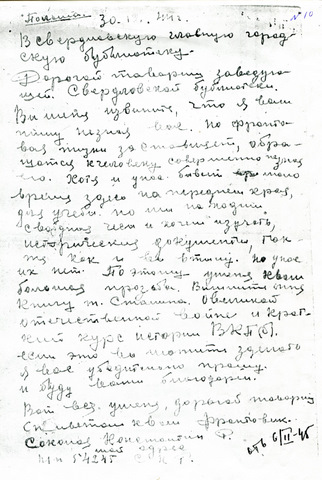 30.
№ 10
В свердловскую главную город
скую бублиотеку.
Дорогой товарищ заведую
щей. Свердловской бублиотеки.
Вы меня извините, что я вам
пишу незная вас. Но фронто
вая жизнь заставляет, обра
щатся к человеку совершенно
его. Хотя и у нас бывает мало
время здесь на переднем крае,
для учебы. но мы находим
свободная часы и хочем изучать,
исторические документы, так
же как и вы в тылу. но у нас
их нет. Поэтому у меня к вам
большая прозьба. Вышлите мне
книгу т. Сталина. О великой
отечественной войне и крат
кий курс истории ВКП(б).
если это вы можите зделать
я вас убедительно прошу.
и буду вам благодарен.
Вот все. у меня, дорогой товарищ
С приветом к вам Фронтовик.
Соколов Константин
мой адрес
отв 6/II-45